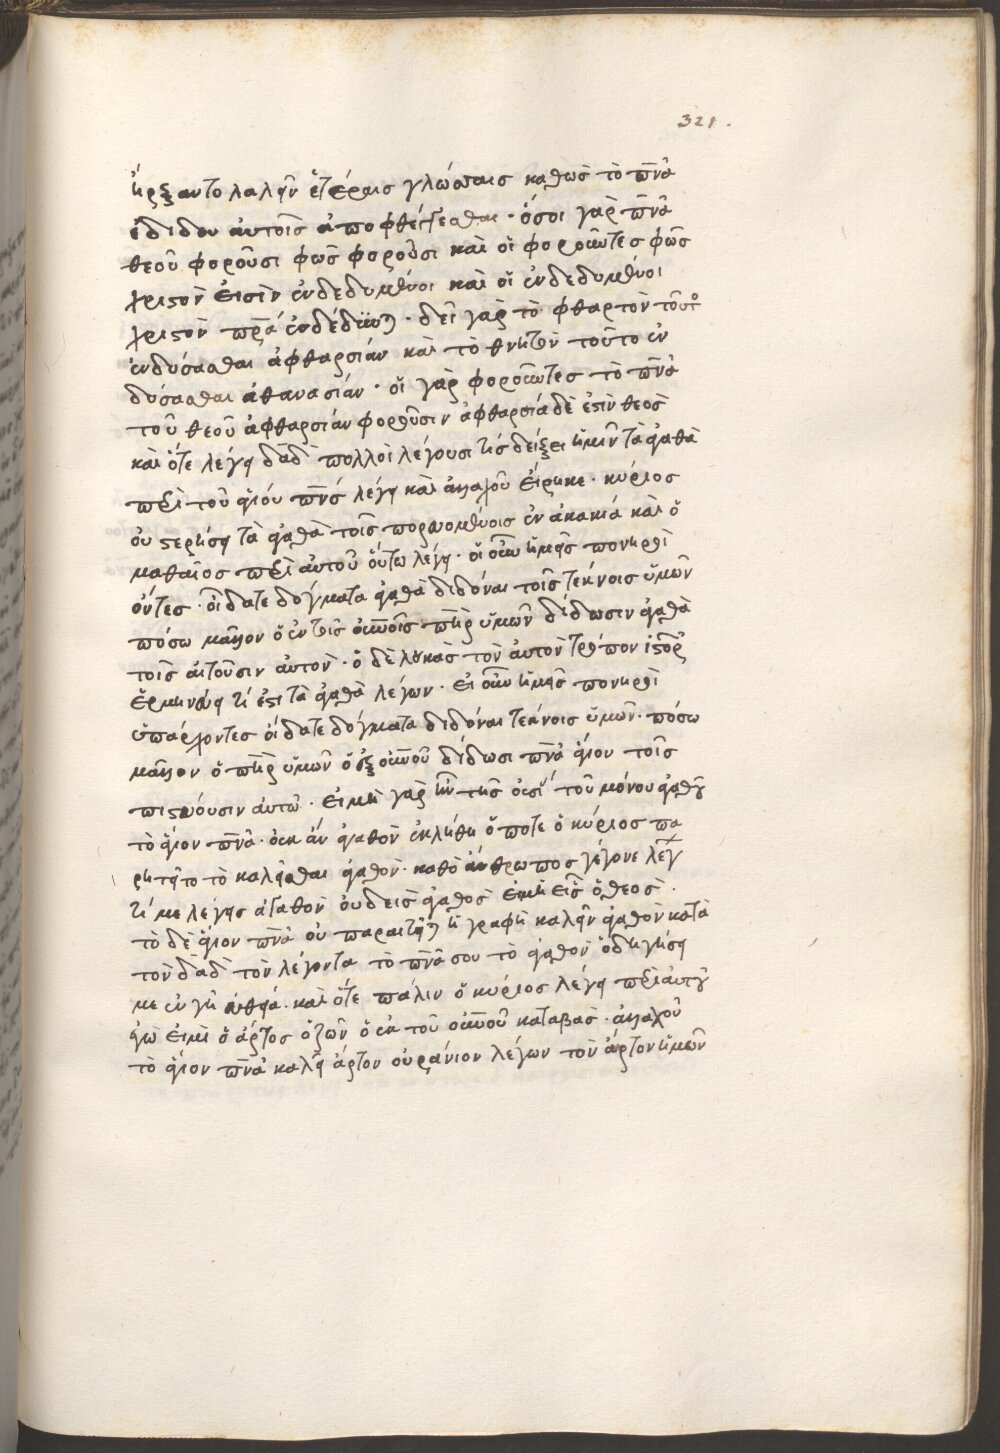 321.
ἤρξαντο λαλεῖν ἑτέραις γλώσσαις καθὼς τὸ πνᾶ
ἐδίδου αὐτοῖς ἀποφθέγγεσθαι · ὅσοι γὰρ πνᾶ
θεοῦ φοροῦσι φῶς φοροῦσι καὶ οἱ φοροῦντες φῶς
χριστὸν εἰσὶν ἐνδεδυμένοι καὶ οἱ ἐνδεδυμένοι
χριστὸν πρᾶ ἐνδέδυνται · δεῖ γὰρ τὸ φθαρτὸν τοῦτο
ἐνδύσασθαι ἀφθαρσίαν καὶ τὸ θνητὸν τοῦτο ἐν
δύσασθαι ἀθανασίαν · οἱ γὰρ φοροῦντες τὸ πνᾶ
τοῦ θεοῦ ἀφθαρσίαν φοροῦσιν ἀφθαρσία δὲ ἐστὶν θεὸς
καὶ ὅτε λέγει δαδ πολλοὶ λέγουσι τίς δείξει ἡμῖν τὰ ἀγαθὰ
περὶ τοῦ ἁγίου πνς λέγει καὶ ἀλλαχοῦ εἴρηκε · κύριος
οὐ στερήσει τὰ ἀγαθὰ τοῖς πορευομένοις ἐν ἀκακία καὶ ὁ
ματθαῖος περὶ αὐτοῦ οὕτω λέγει · εἰ οὖν ὑμεῖς πονηροὶ
ὄντες · οἴδατε δόγματα ἀγαθὰ διδόναι τοῖς τέκνοις ὑμῶν
πόσω μᾶλλον ὁ ἐν τοῖς οὐνοῖς πηρ ὑμῶν δίδωσιν ἀγαθὰ
τοῖς αἰτοῦσιν αὐτὸν · ὁ δὲ λουκᾶς τὸν αὐτὸν τρόπον ἱστορ
ἑρμηνεύει τί ἐστι τὰ ἀγαθὰ λέγων · εἰ οὖν ὑμεῖς πονηροὶ
ὑπάρχοντες οἴδατε δόγματα διδόναι τέκνοις ὑμῶν · πόσω
μᾶλλον ὁ πηρ ὑμῶν ὁ ἐξ οὐνοῦ δίδωσι πνᾶ ἅγιον τοῖς
πιστεύουσιν αὐτῶ · εἰ μὴ γὰρ ἦν τῆς οὐσί τοῦ μόνου ἀγαθοῦ
τὸ ἅγιον πνᾶ · οὐκ ἂν ἀγαθὸν ἐκλήθη ὁπότε ὁ κύριος πα
ρητεῖτο τὸ καλεῖσθαι ἀγαθὸν · καθὸ ἄνθρωπος γέγονε λέγων
τί με λέγεις ἀγαθὸν οὐδεὶς ἀγαθὸς εἰ μὴ εἷς ὁ θεὸς ·
τὸ δὲ ἅγιον πνᾶ οὐ παραιτεῖται ἡ γραφὴ καλεῖν ἀγαθὸν κατὰ
τὸν δαδ τὸν λέγοντα τὸ πνᾶ σου τὸ ἀγαθὸν ὁδηγήσει
με ἐν γῆ εὐθεία · καὶ ὅτε πάλιν ὁ κύριος λέγει περὶ αὐτοῦ
ἐγώ εἰμι ὁ ἄρτος ὁ ζῶν ὁ ἐκ τοῦ οὐνοῦ καταβὰς · ἀλλαχοῦ
τὸ ἅγιον πνᾶ καλεῖ ἄρτον οὐράνιον λέγων τὸν ἄρτον ἡμῶν